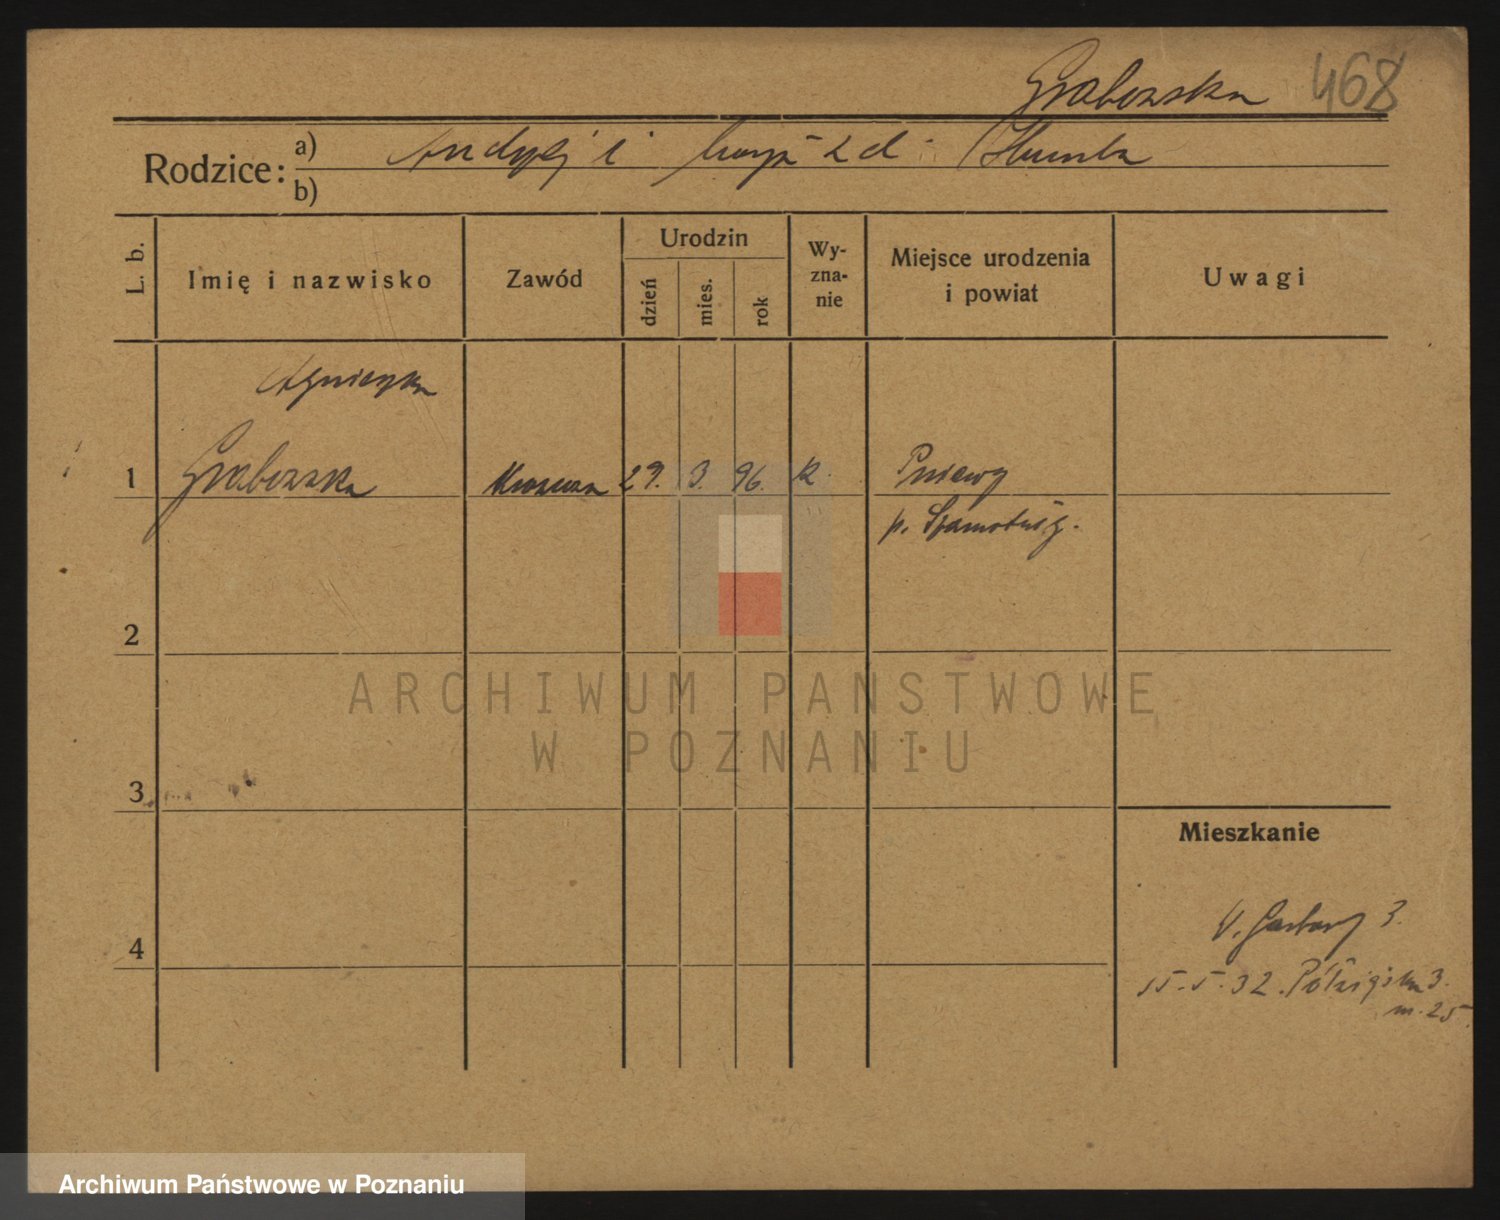 Grabowska 468
Rodzice: a) Andrzej i z d.
b)
L. b.
Imię i nazwisko
Zawód
Urodzin
dzień
mies.
rok
Wy-
zna-
nie
Miejsce urodzenia
i powiat
Uwagi
Agnieszka
1 Grabowska 29. 3. 96. k. Pniewy
p. Szamotuły.
2
3
4
Mieszkanie
W. Garbary 3.
15.5.32. 3.
m. 25.
ARCHIWUM PAŃSTWOWE
W POZNANIU
Archiwum Państwowe w Poznaniu